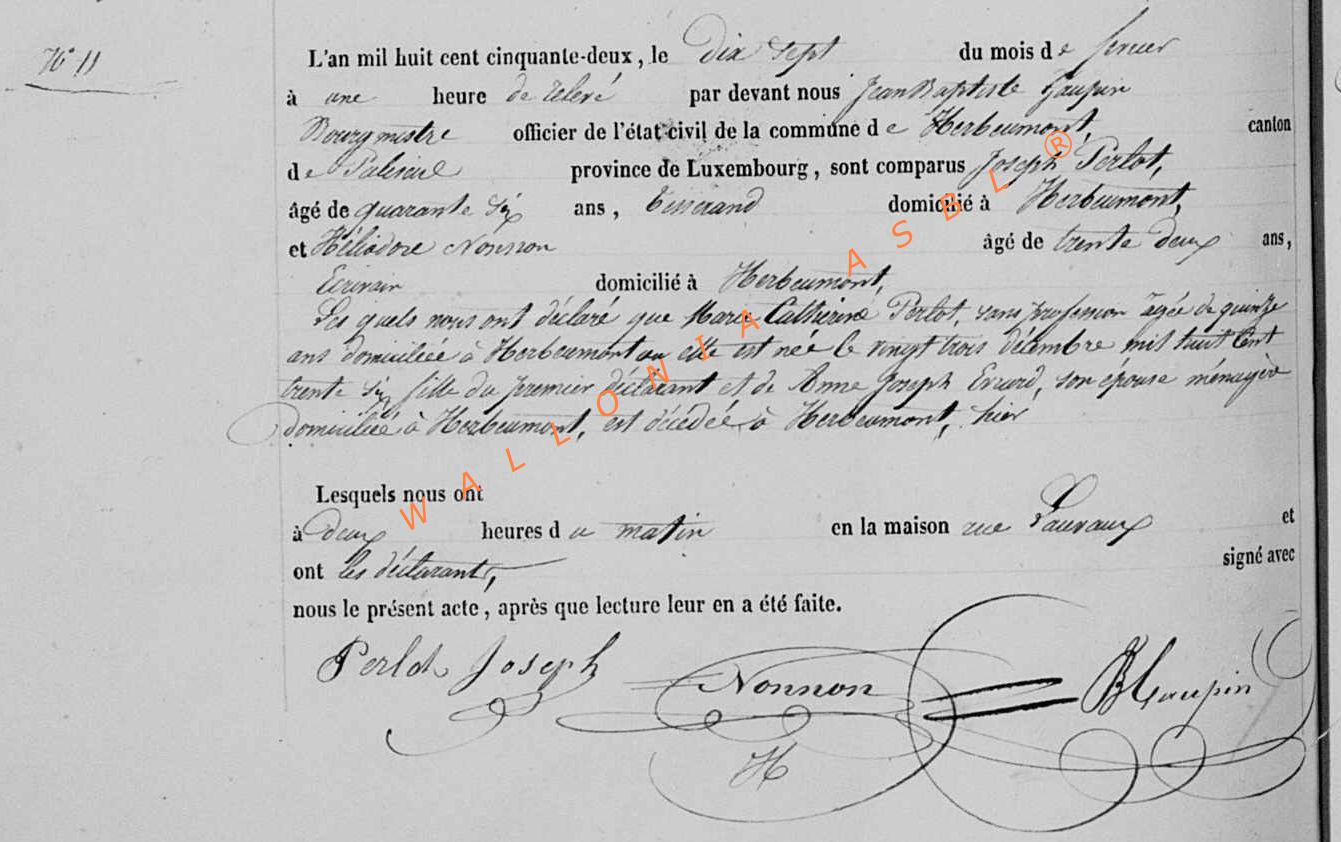 N° 11
L'an mil huit cent cinquante-deux, le Dix sept du mois de fevrier
à une heure de relevé par devant nous Jean Baptiste Gaupin
Bourgmestre officier de l'état civil de la commune de Herbeumont, canton
de Paliseul province de Luxembourg, sont comparus Joseph Perlot,
âgé de quarante six ans, Tisserand domicilié à Herbeumont,
et Héliodore Nonnon âgé de trente deux ans,
Ecrivain domicilié à Herbeumont,
Les quels nous ont déclaré que Marie Catherine Perlot, sans profession agée de quinze
ans domiciliée à Herbeumont ou elle est née le vingt trois décembre mil huit cent
trente six fille du premier déclarant et de Anne Joseph Evrard, son épouse ménagère
domiciliée à Herbeumont, est décédée à Herbeumont, hier
Lesquels nous ont
à deux heures du matin en la maison rue Lauvaux et
ont les déclarants, signé avec
nous le présent acte, après que lecture leur en a été faite.
Perlot Joseph Nonnon JB Gaupin
H
WALLONIA ASBL ®